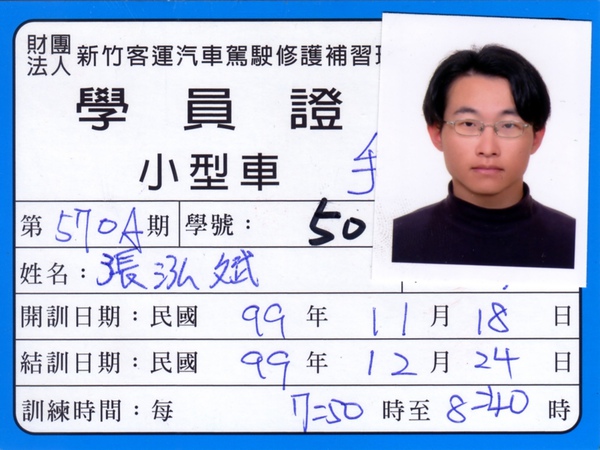 財團法人 新竹客運汽車駕駛修護補習班
學員證
小型車 手
第 570A 期 學號： 50
姓名：張泓斌
開訓日期：民國 99 年 11 月 18 日
結訓日期：民國 99 年 12 月 24 日
訓練時間：每 7:50 時至 8:40 時